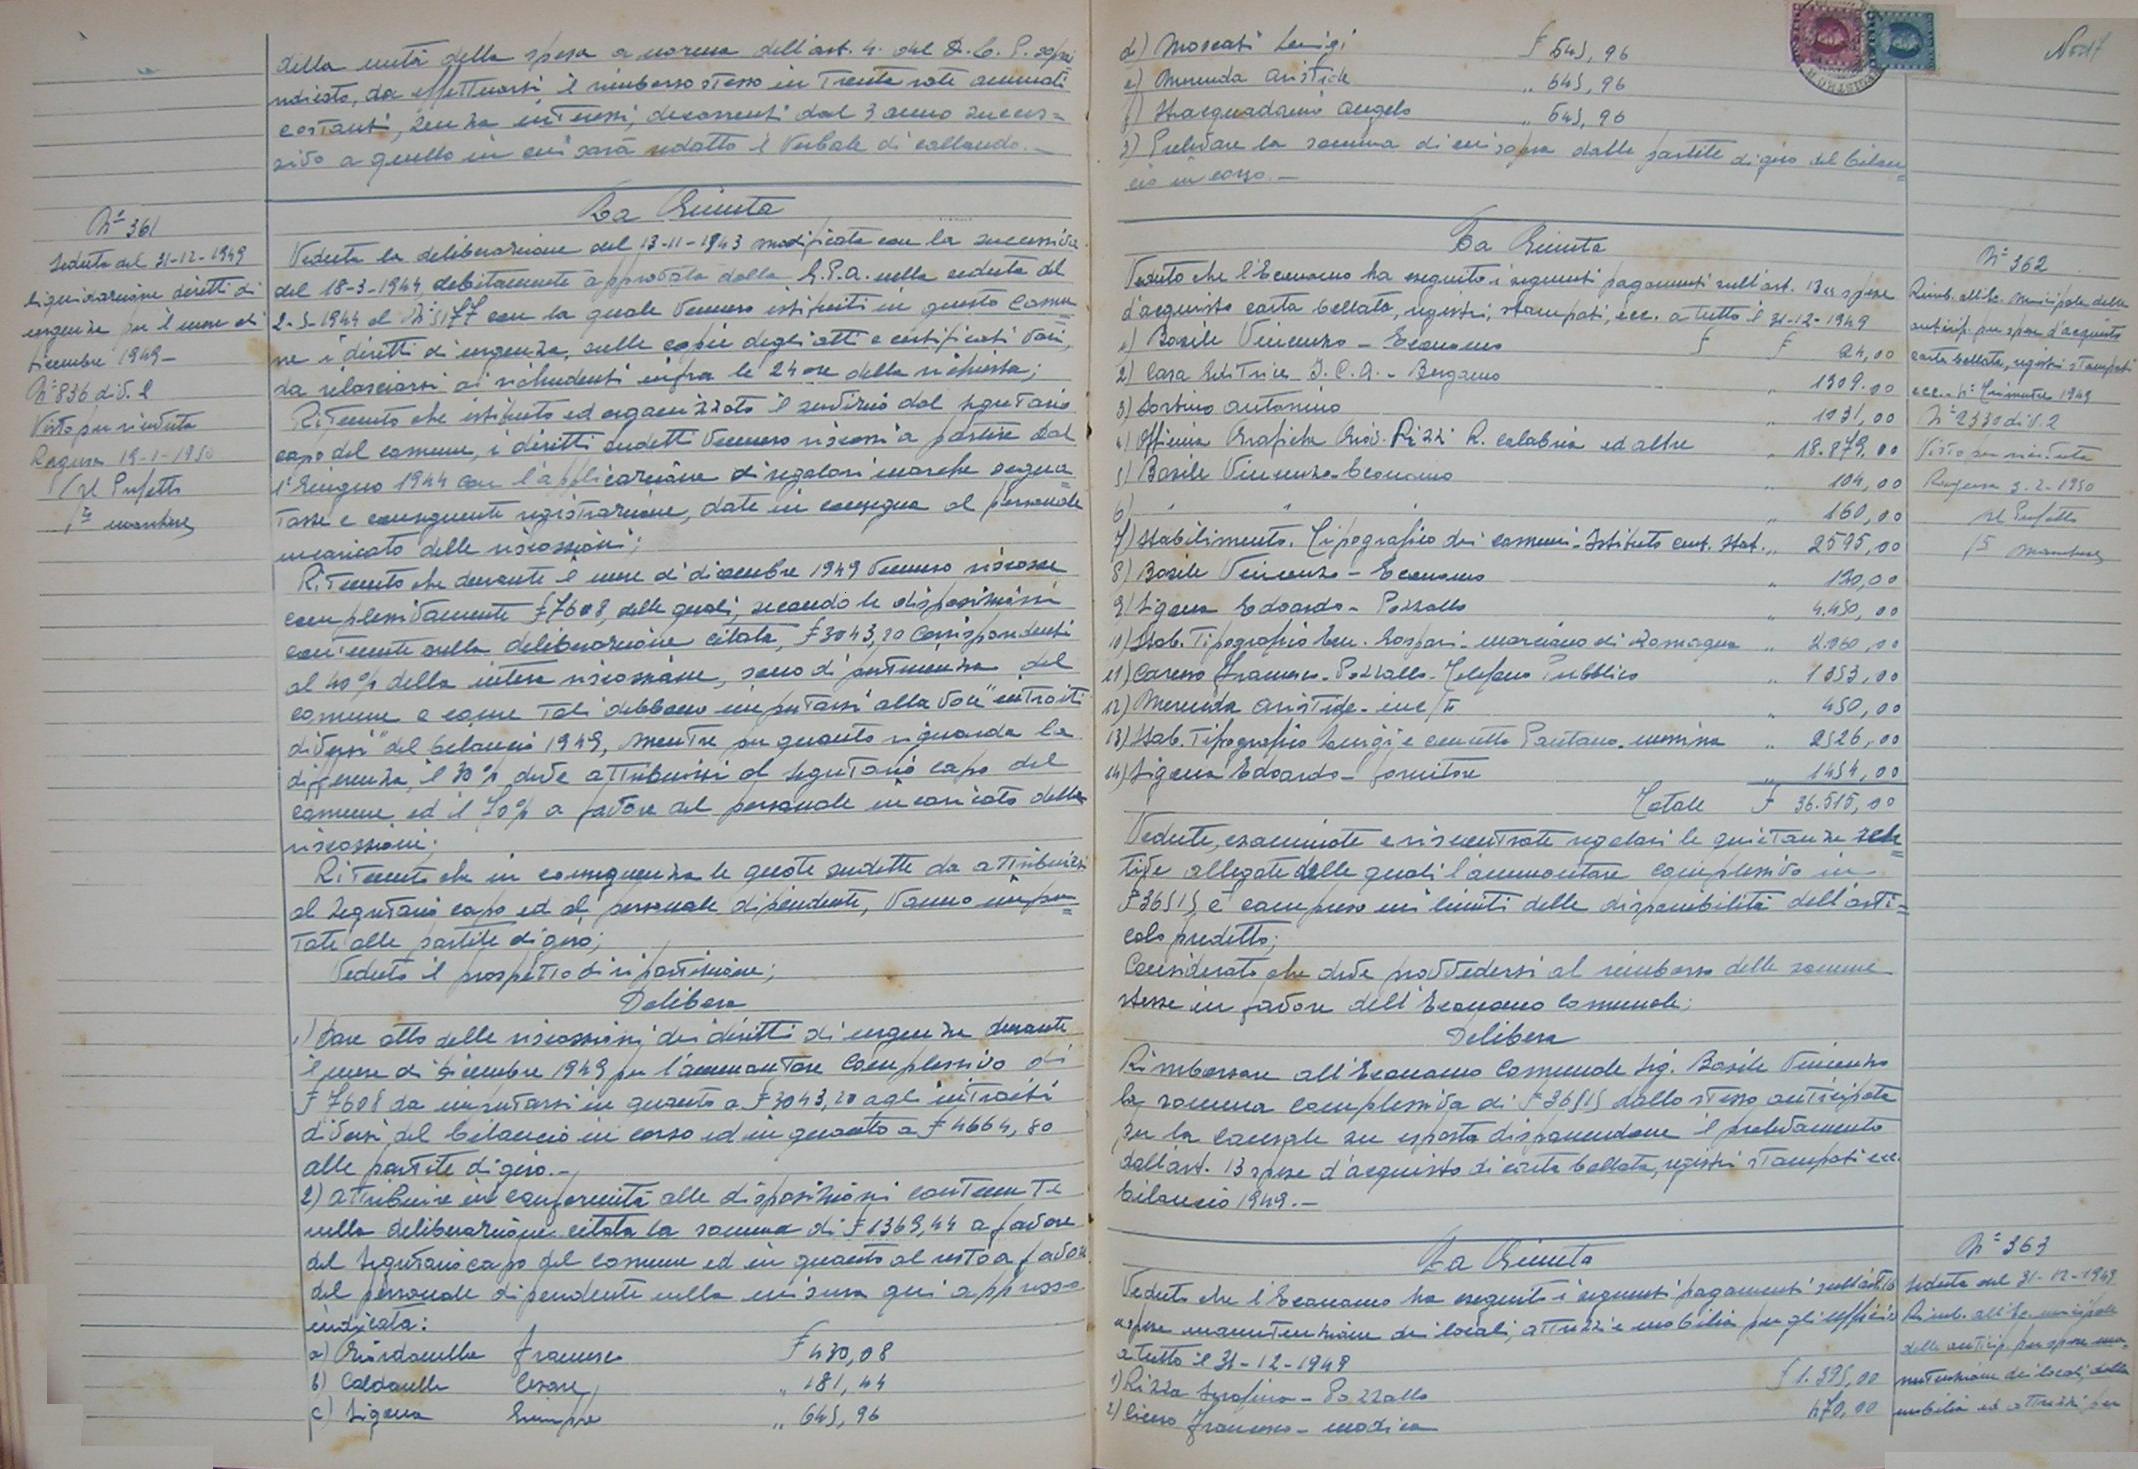 della metà della spesa a norma dell'art. 4. del D.C.P. sopra
indicato, da effettuarsi il rimborso stesso in trenta rate annuali
costanti, senza interessi, decorrenti dal 3 anno succes=
sivo a quello in cui sarà redatto il verbale di collaudo.-
Nº 361
Seduta del 31-12-1949
Liquidazione diritti di
urgenza per il mese di
Dicembre 1949-
Nº 836 div. 2
Visto per ricevuta
Ragusa 19-1-1950
Il Prefetto
La Giunta
Veduta la deliberazione del 13-11-1943 modificata con la successiva
del 18-3-1944, debitamente approvata dalla G.P.A. nella seduta del
2-5-1944 al Nº 5177 con la quale vennero istituiti in questo Comu
ne i diritti di urgenza, sulle copie degli atti e certificati vari,
da rilasciarsi ai richiedenti infra le 24 ore della richiesta;
Ritenuto che istituito ed organizzato il servizio dal segretario
capo del comune, i diritti sudetti vennero riscossi a partire dal
1º Giugno 1944 con l'applicazione di regolari marche segna
tasse e conseguente registrazione, date in consegna al personale
incaricato delle riscossioni;
Ritenuto che durante il mese di dicembre 1949 vennero riscosse
complessivamente £ 7608, delle quali, secondo le disposizioni
contenute nella deliberazione citata, £ 3043,20 corrispondenti
al 40% della intera riscossione, sono di pertinenza del
comune e come tali debbono imputarsi alla voce "introiti
diversi" del bilancio 1949, mentre per quanto riguarda la
differenza, il 30% deve attribuirsi al segretario capo del
comune ed il 70% a favore del personale incaricato delle
riscossioni;
Ritenuto che in conseguenza le quote sudette da attribuirsi
al Segretario capo ed al personale dipendente, vanno impu=
tate alle partite di giro;
Veduto il prospetto di ripartizione;
Delibera
1) Dare atto delle riscossioni dei diritti di urgenza durante
il mese di Dicembre 1949 per l'ammontare complessivo di
£ 7608 da imputarsi in quanto a £ 3043,20 agli introiti
diversi del bilancio in corso ed in quanto a £ 4664,80
alle partite di giro.-
2) Attribuire in conformità alle disposizioni contenute
nella deliberazione citata la somma di £ 1369,44 a favore
del Segretario capo del comune ed in quanto al resto a favore
del personale dipendente nella misura qui appresso
indicata:
a) Giordanella Francesco £ 430,08
b) Caldarella Cesare „ 181,44
c) Sigona Giuseppe „ 645,96
d) Moscati Luigi £ 645,96
e) Merenda Aristide „ 645,96
f) Stracquadaino Angelo „ 645,96
3) Prelevare la somma di cui sopra dalle partite di giro del bilan=
cio in corso.-
La Giunta
Veduto che l'Economo ha eseguito i seguenti pagamenti sull'art. 13 spese
d'acquisto carta bollata, registri, stampati, ecc. a tutto il 31-12-1949
1) Basile Vincenzo - Economo £ £ 24,00
2) Casa Editrice I.C.A. - Bergamo „ 1309.00
3) Sortino Antonino „ 1031,00
4) Officina Grafiche Giov. Rizzi R. Calabria ed altre „ 18.879,00
5) Basile Vincenzo - Economo „ 104,00
6) „ „ „ 160,00
7) Stabilimento Tipografico dei comuni - Istituto cent. Stat. „ 2595,00
8) Basile Vincenzo - Economo „ 120,00
9) Sigona Edoardo - Pozzallo „ 4.450,00
10) Stab. Tipografico Gaspari - Morciano di Romagna „ 2.060,00
11) Caruso Francesco - Pozzallo - Telefono Pubblico „ 1353,00
12) Merenda Aristide „ 450,00
13) Stab. Tipografico Luigi e Concetto Pantano - Messina „ 2526,00
14) Sigona Edoardo - fornitore „ 1454,00
Totale £ 36.515,00
Vedute, esaminate e riscontrate regolari le quietanze rela=
tive allegate delle quali l'ammontare complessivo in
£ 36515 è compreso nei limiti delle disponibilità dell'arti=
colo predetto;
Considerato che deve provvedersi al rimborso delle somme
stesse in favore dell'Economo Comunale;
Delibera
Rimborsare all'Economo Comunale Sig. Basile Vincenzo
la somma complessiva di £ 36515 dallo stesso anticipata
per la causale su esposta disponendone il prelevamento
dall'art. 13 spese d'acquisto di carta bollata, registri stampati ecc.
bilancio 1949.-
Nº 362
Rimb. all'Ec. Municipale delle
anticip. per spese d'acquisto
carta bollata, registri stampati
ecc. 4º Trimestre 1949
Nº 2330 div. 2
Visto per ricevuta
Ragusa 3-2-1950
Il Prefetto
La Giunta
Veduto che l'Economo ha eseguito i seguenti pagamenti sull'art. 16
spese manutenzione dei locali, attrezzi e mobilia per gli uffici
a tutto il 31-12-1949
1) Rizza Serafino - Pozzallo £ 1.395,00
2) Cicero Francesco - Modica 470,00
Nº 363
Seduta del 31-12-1949
Rimb. all'Ec. Municipale
delle anticip. per spese ma=
nutenzione dei locali, della
mobilia ed attrezzi per